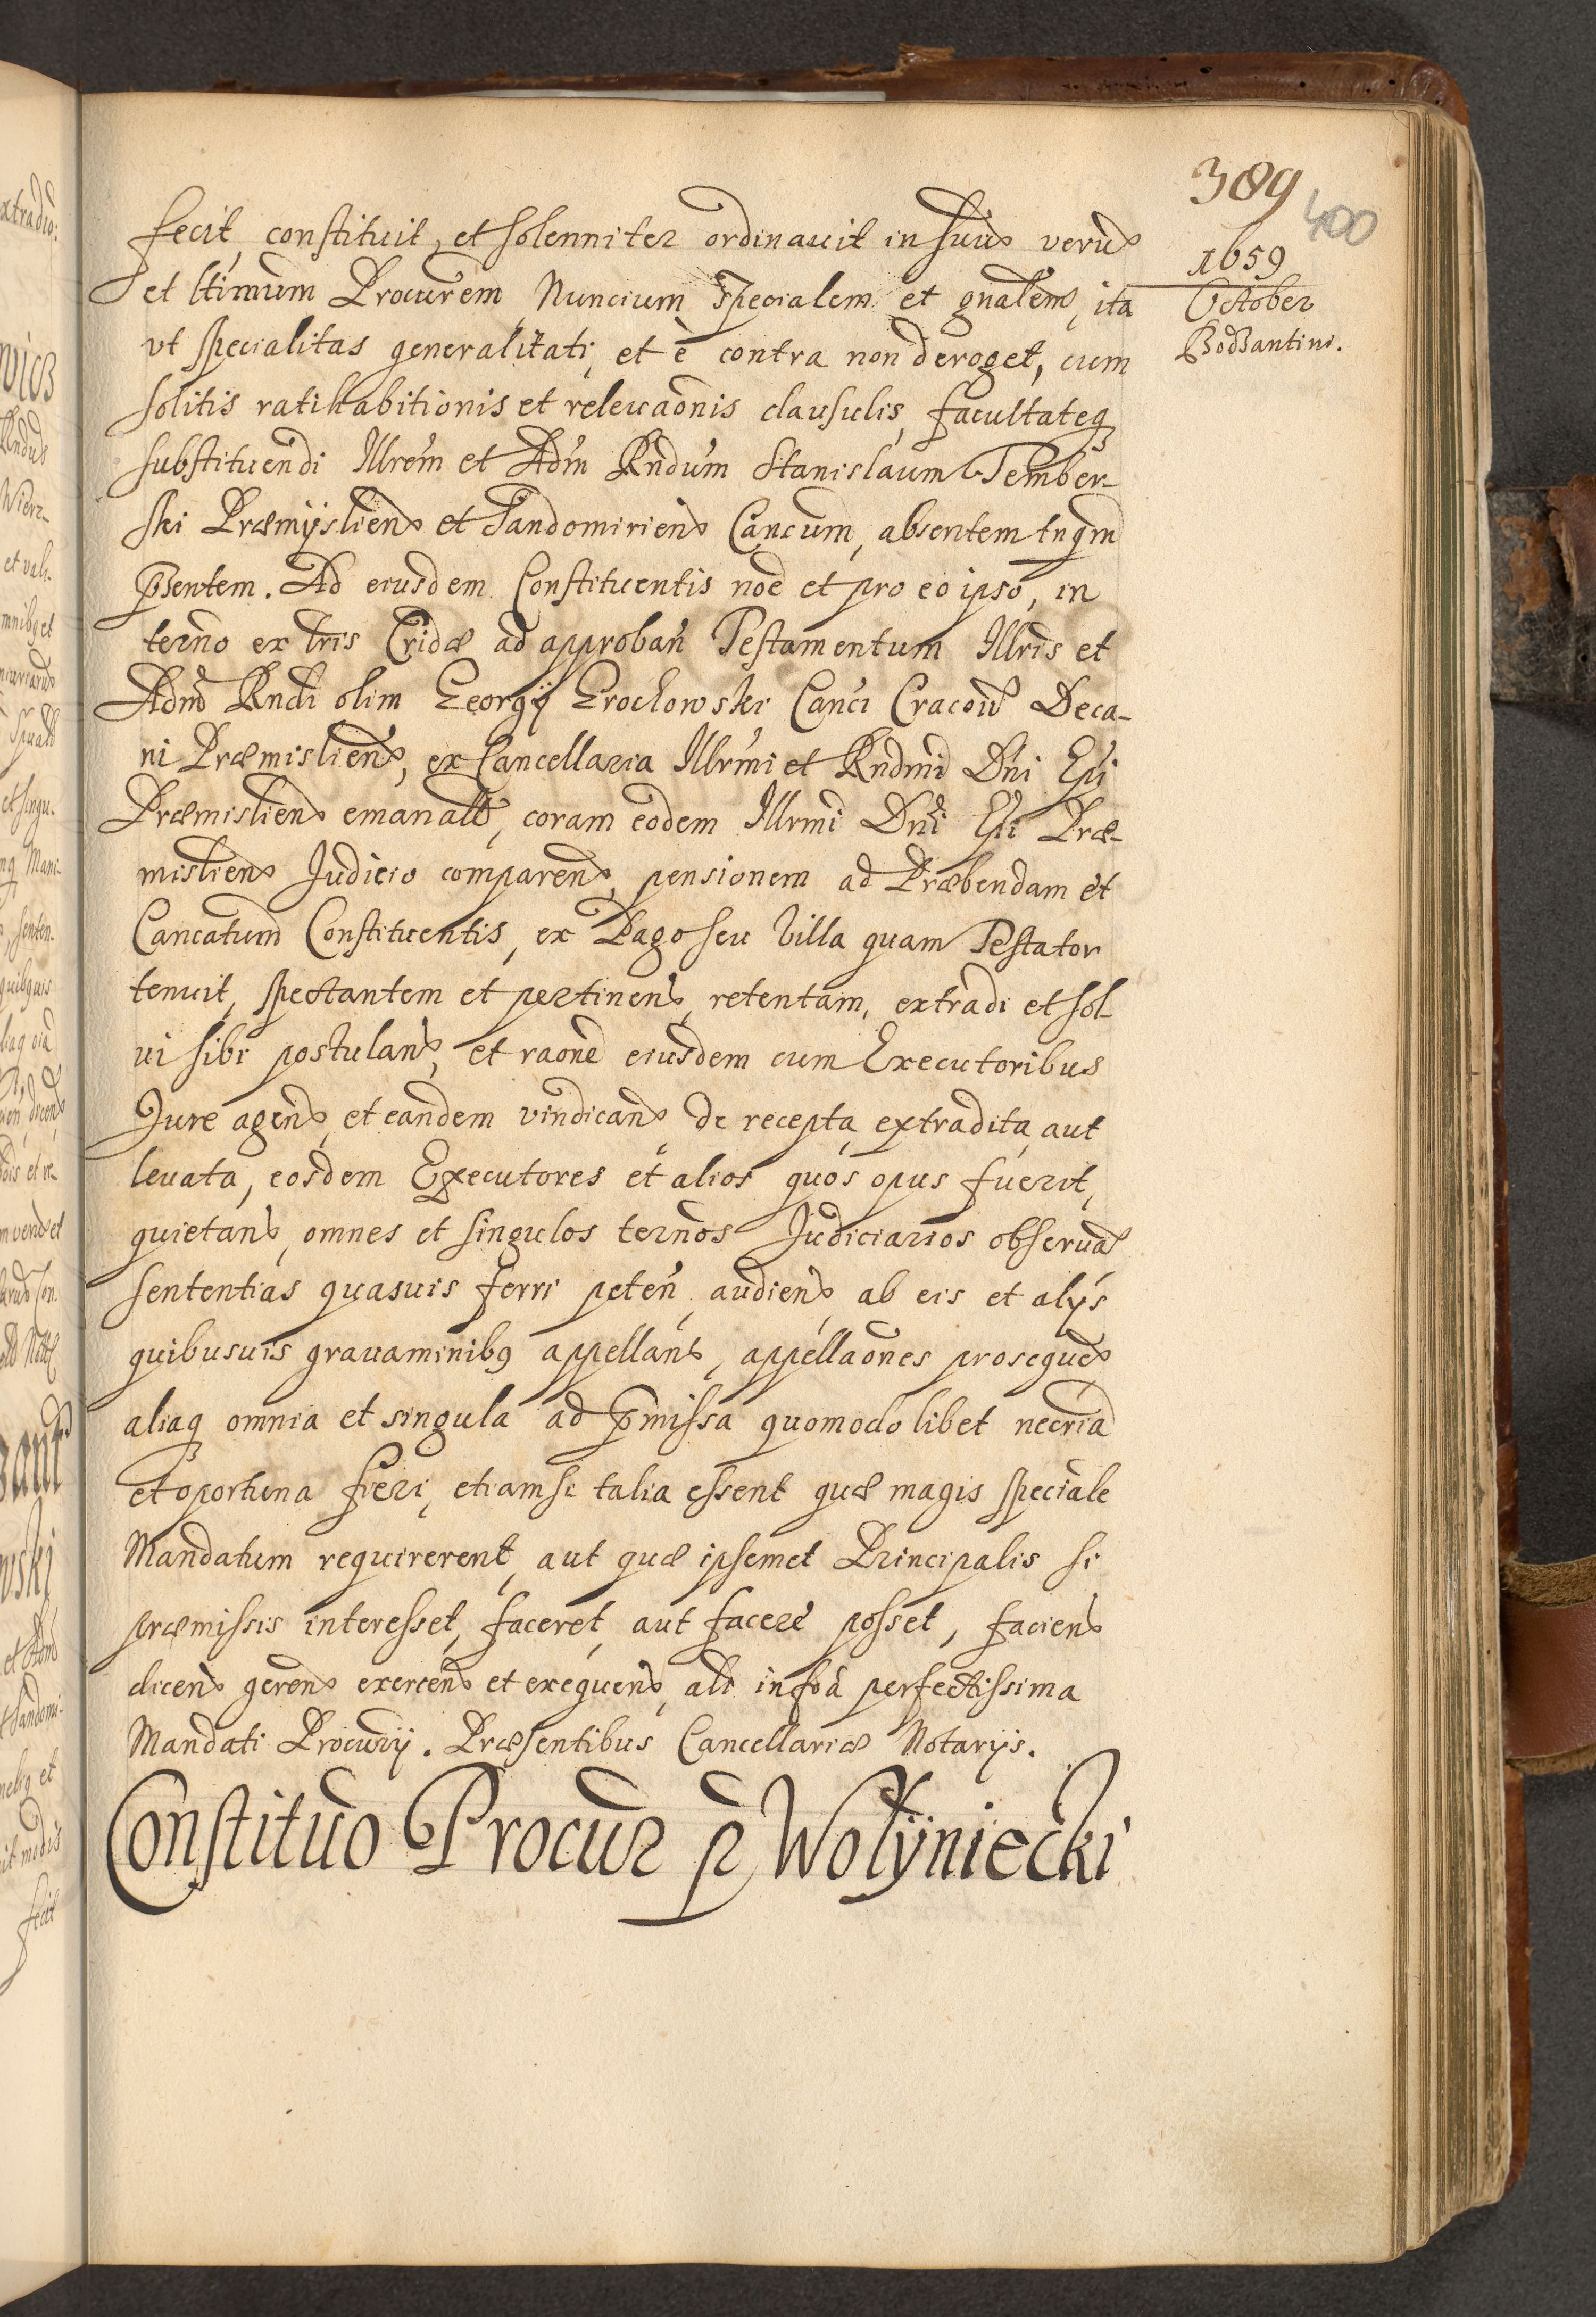 389
400
1659
October
Bodzantini.
fecit, constituit, et solenniter ordinauit in suũ verũ
et ltimum Procurem, Nuncium specialem et gnalem, ita
vt specialitas generalitati, et è contra non deroget, cum
solitis ratihabitionis et releuaonis clausulis, facultateq
substituendi Illrem et Adm Rndum Stanislaum Tember-
ski Præmysliens et Sandomiriens Cancum, absentem tnqm
pñtem. Ad eiusdem Constituentis noe et pro eo ipso, in
termo ex lris Cridæ ad approban Testamentum Illris et
Adm Rndi olim Georgij Grochowski Canci Cracoui Deca-
ni Præmisliens, ex Cancellaria Illrmi et Rndmi Dni Epi
Præmisliens emanat, coram eodem Illrmi Dni Epi Præ-
misliens Judicio comparens, pensionem ad Præbendam et
Cancatum Constituentis, ex Pago seu Villa quam Testator
tenuit, spectantem et pertinens, retentam, extradi et sol-
ui sibi postulans, et raone eiusdem cum Executoribus
Jure agens, et eandem vindicans de recepta extradita aut
leuata, eosdem Executores et alios quos opus fuerit,
quietans, omnes et singulos termos Judiciarios obseruas
sententias quasuis ferri peten audiens ab eis et alijs
quibusuis grauaminibq appellans, appellaones proseques
aliaq omnia et singula ad pmissa quomodolibet necria
et oportuna fieri, etiamsi talia essent quæ magis speciale
Mandatum requirerent, aut quæ ipsemet Principalis si
præmissis interesset, faceret, aut facere posset, faciens
dicens gerens exercens et exequens, alr in foa perfectissima
Mandati Procurij. Præsentibus Cancellariæ Notarijs.
Constituo Procur p Wolÿniecki